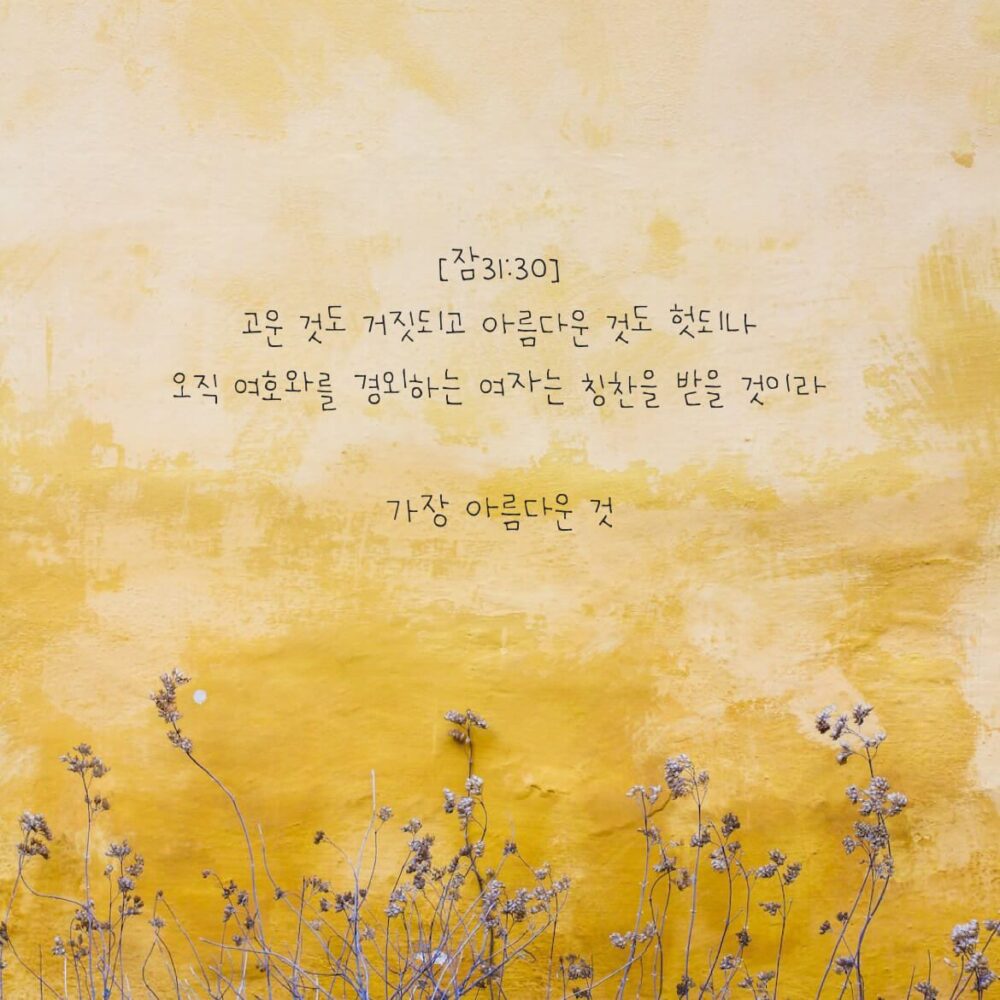 [잠31:30]
고운 것도 거짓되고 아름다운 것도 헛되나
오직 여호와를 경외하는 여자는 칭찬을 받을 것이라
가장 아름다운 것